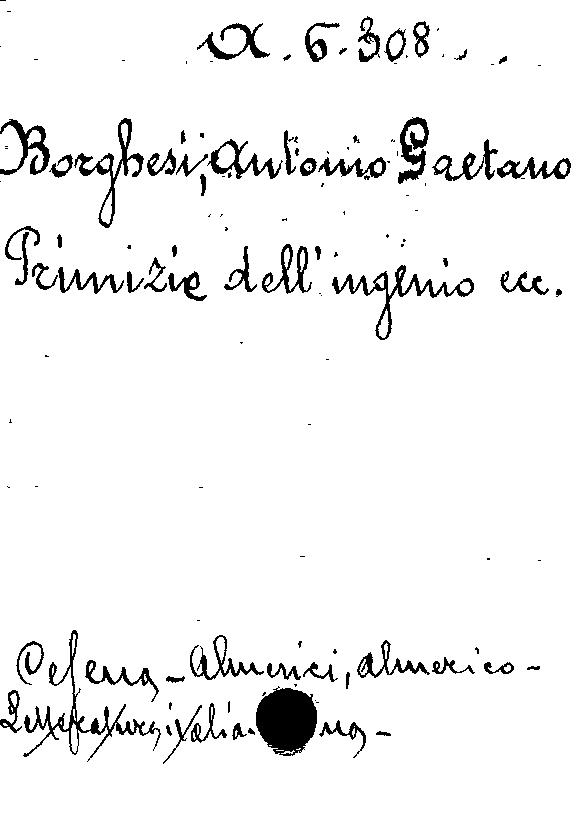 A. 6. 308.
Borghesi, Antonio Gaetano
Primizie dell'ingenio ecc.
Cesena - Almerici, Almerico -
Letteratura italia na -